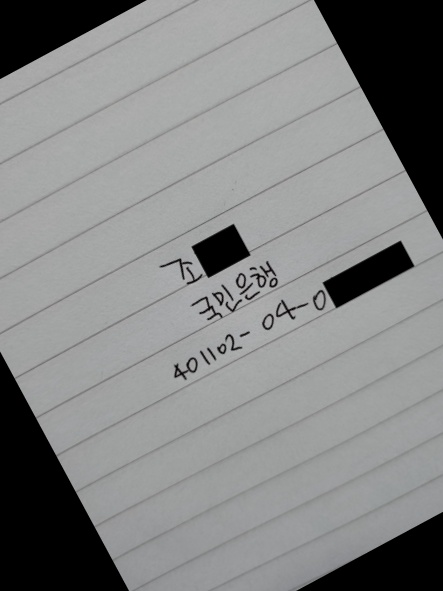 고조
국민은행
401102-04-0